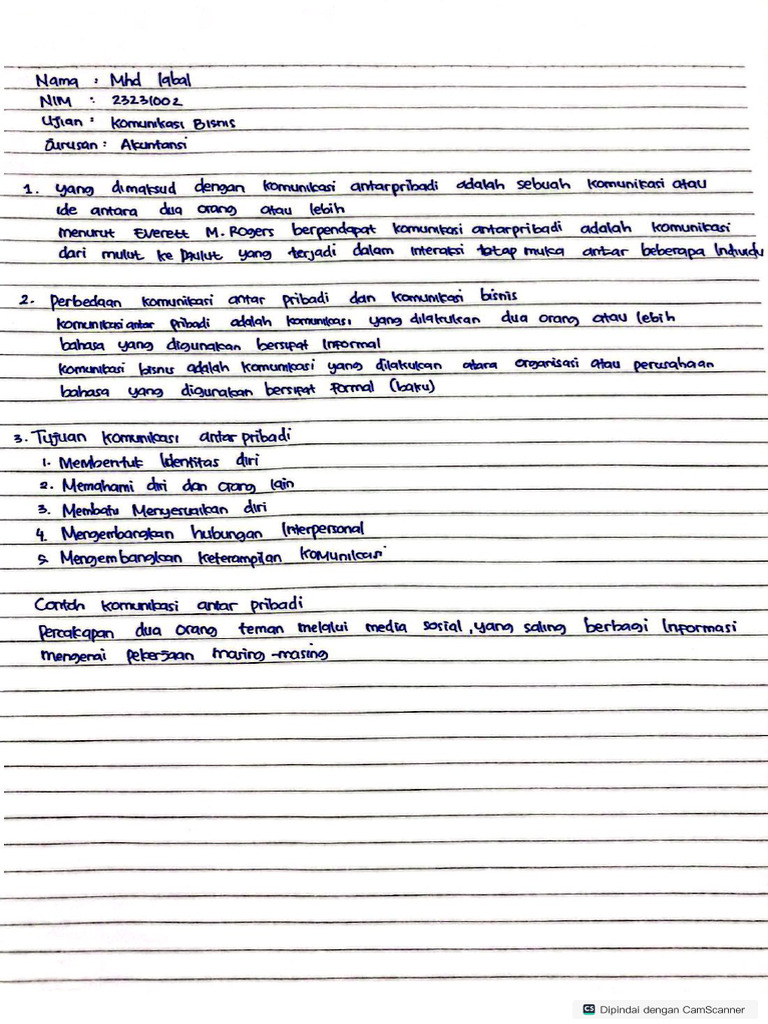 Nama : Mhd Iqbal
NIM : 23231002
Ujian : Komunikasi Bisnis
Jurusan : Akuntansi
1. yang dimaksud dengan komunikasi antarpribadi adalah sebuah komunikasi atau
ide antara dua orang atau lebih
menurut Everett M. Rogers berpendapat komunikasi antarpribadi adalah komunikasi
dari mulut ke mulut yang terjadi dalam interaksi tatap muka antar beberapa Individu
2. Perbedaan komunikasi antar pribadi dan komunikasi bisnis
komunikasi antar pribadi adalah komunikasi yang dilakukan dua orang atau lebih
bahasa yang digunakan bersipat Informal
komunikasi bisnis adalah komunikasi yang dilakukan atara organisasi atau perusahaan
bahasa yang digunakan bersipat Formal (baku)
3. Tujuan komunikasi antar pribadi
1. Membentuk Identitas diri
2. Memahami diri dan orang lain
3. Membatu Menyesuaikan diri
4. Mengembangkan hubungan Interpersonal
5. Mengembangkan keterampilan komunikasi
Contoh komunikasi antar pribadi
Percakapan dua orang teman melalui media sosial, yang saling berbagi Informasi
mengenai pekerjaan masing-masing
CS Dipindai dengan CamScanner